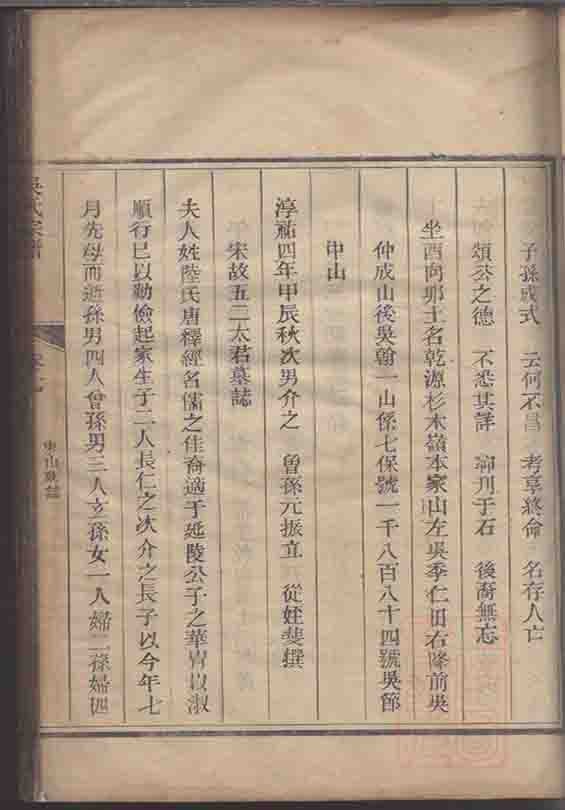 子孫或式　云何不昌　考享終命　名存人亡
頌公之德　不悉其詳　鄃刋于石　後裔無忘
坐酉向卯土名乾源杉木嶺本家山左吳季仁田右降前吳
仲成山後吳翰一山係七保號一千八百八十四號吳節
中山
淳祐四年甲辰秋次男介之　曾孫元振立　從姪斐撰
宋故五三太君墓誌
夫人姓陸氏唐釋經名儒之佳裔適于延陵公子之華胄以淑
順行巳以勤儉起家生子二人長仁之次介之長子以今年七
月先母而逝孫男四人曾孫男三人玄孫女一人婦二孫婦四
吳氏宗譜
中山墓誌